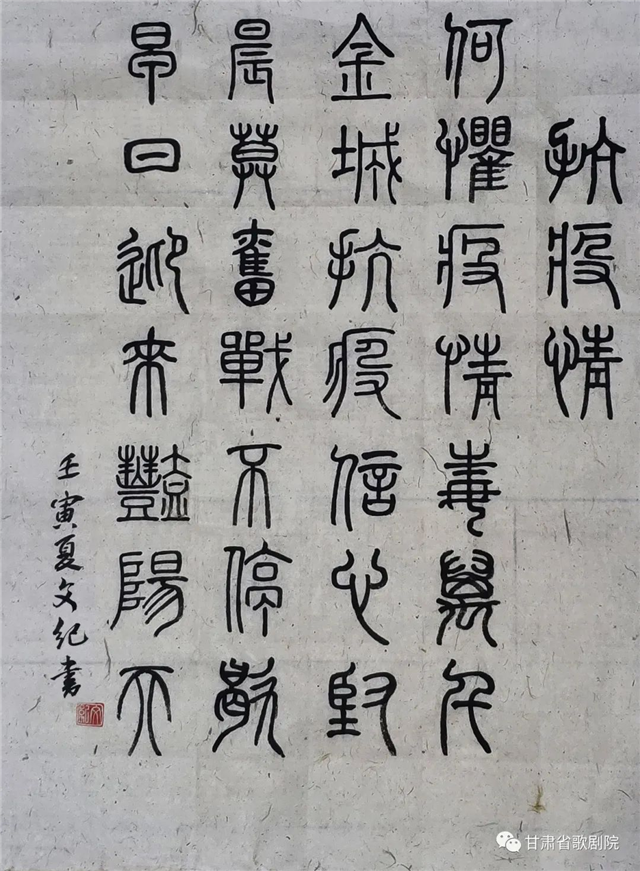 抗疫情
何懼疫情毒萬千
金城抗疫信心堅
晨莫奮戰不停歇
早日迎來豔陽天
壬寅夏文紀書
甘肃省歌剧院